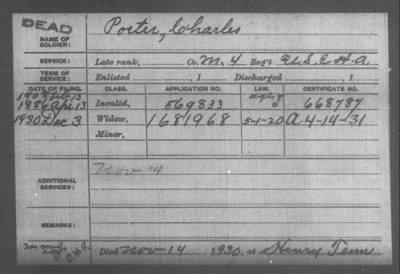 DEAD
NAME OF SOLDIER: Porter, Charles
SERVICE: Late rank, Co. M, 4 Reg't U.S.C.H.A.
TERM OF SERVICE: Enlisted , 1 Discharged , 1
DATE OF FILING. CLASS. APPLICATION NO. LAW. CERTIFICATE NO.
1886 Apr 13 Invalid, 569833 668787
1930 Dec 3 Widow, 1681968 5-1-20 A 4-14-31
Minor,
Nov-14
ADDITIONAL SERVICES:
REMARKS:
Died Nov-14 1930, at Henry Tenn